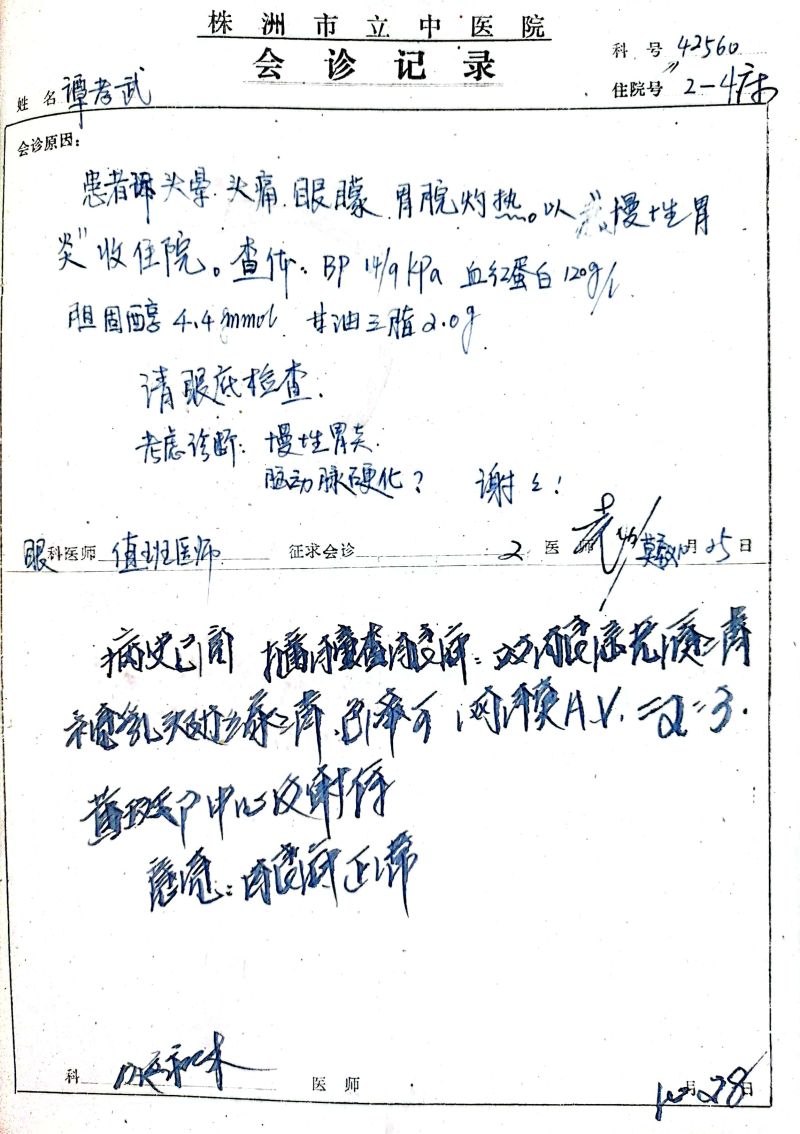 株洲市立中医院
会诊记录
科号 42560
姓名 谭孝武 住院号 2-4床
会诊原因：
患者诉头晕.头痛.眼矇 胃脘灼热。以"慢性胃
炎"收住院。查体：BP 14/9kPa 血红蛋白120g/L
胆固醇4.4mmol 甘油三脂2.0g
请眼底检查.
考虑诊断：慢性胃炎.
脑动脉硬化？ 谢谢！
眼科医师 值班医师 征求会诊 2 医师 月25日
病史已阅 眼底：双眼底
视乳头 可 A.V.=2=3.
黄斑部中心反射存
意见：眼底正常
科 医师 10月28日